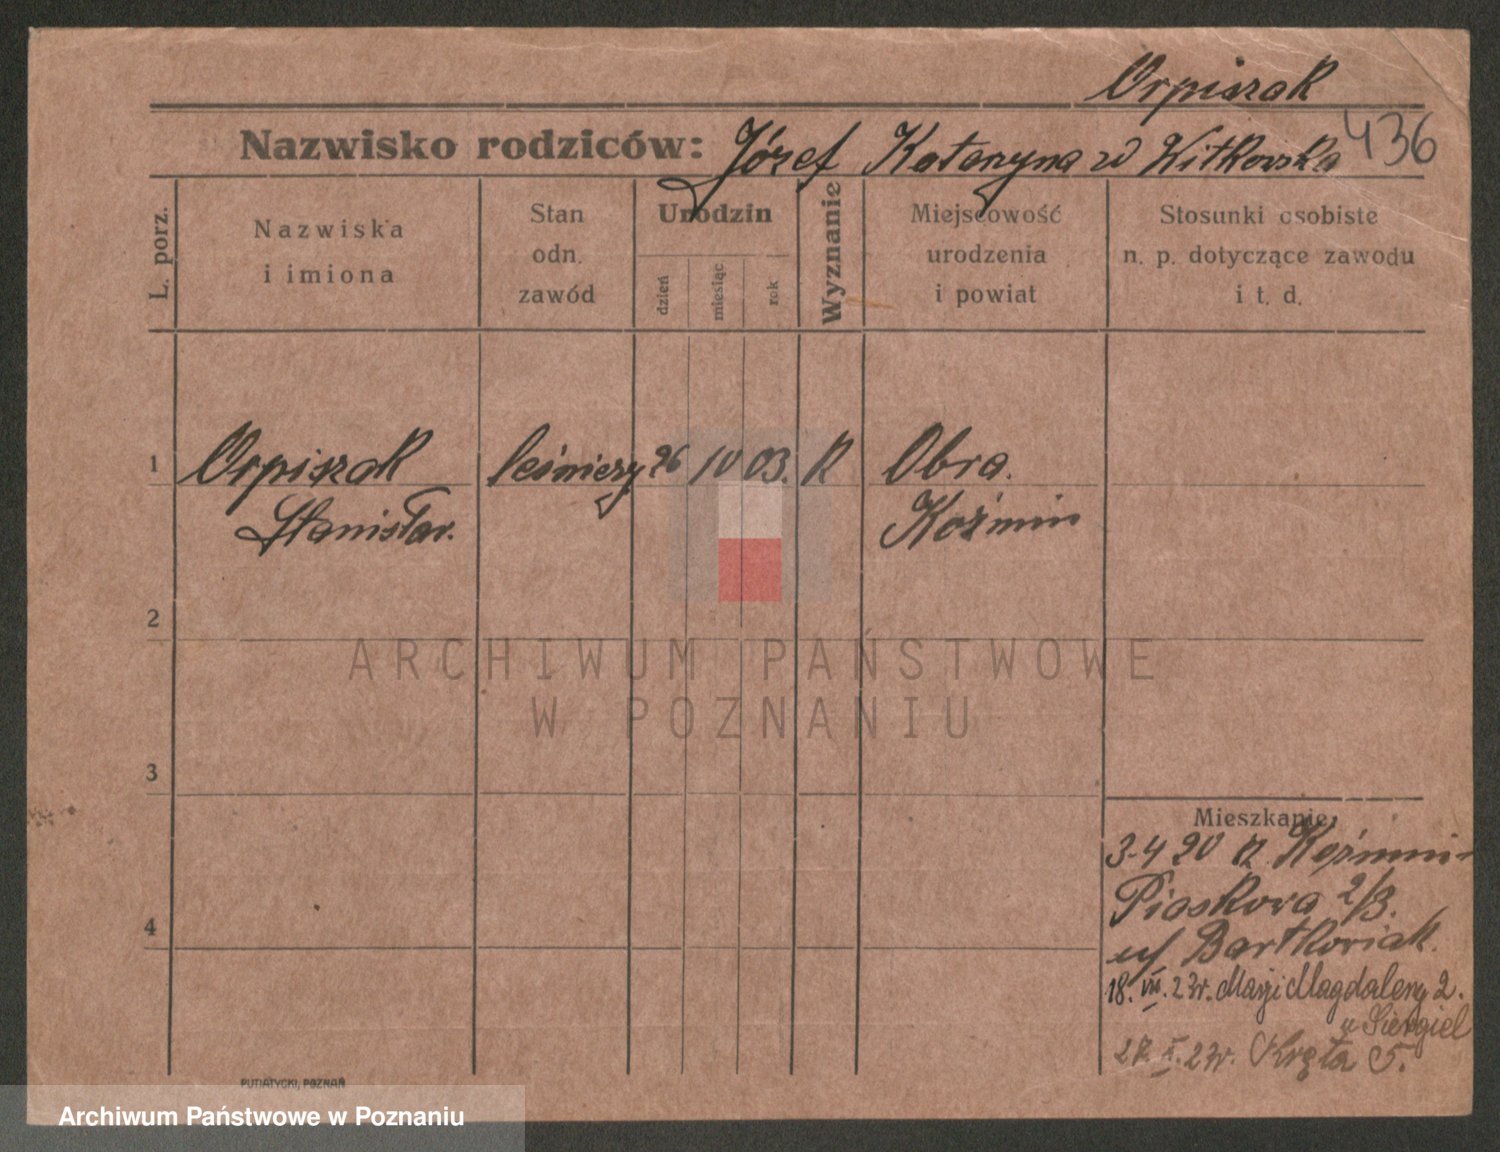 Orpiszak
436
Nazwisko rodziców: Józef Katarzyna w Witkowska
L. porz.
Nazwiska
i imiona
Stan
odn.
zawód
Urodzin
dzień
miesiąc
rok
Wyznanie
Miejscowość
urodzenia
i powiat
Stosunki osobiste
n. p. dotyczące zawodu
i t. d.
1 Orpiszak leśniczy 26 10 03. R Obra.
Stanisław. Koźmin
2
ARCHIWUM PAŃSTWOWE
W POZNANIU
3
Mieszkanie:
3-4 20 z Koźmin
Piaskowa 2/3.
u/ Bartkowiak.
4
18. VII. 23r. Marji Magdaleny 2.
u Siergiel
27. X. 23r. Kręta 5.
PUTIATYCKI, POZNAŃ
Archiwum Państwowe w Poznaniu